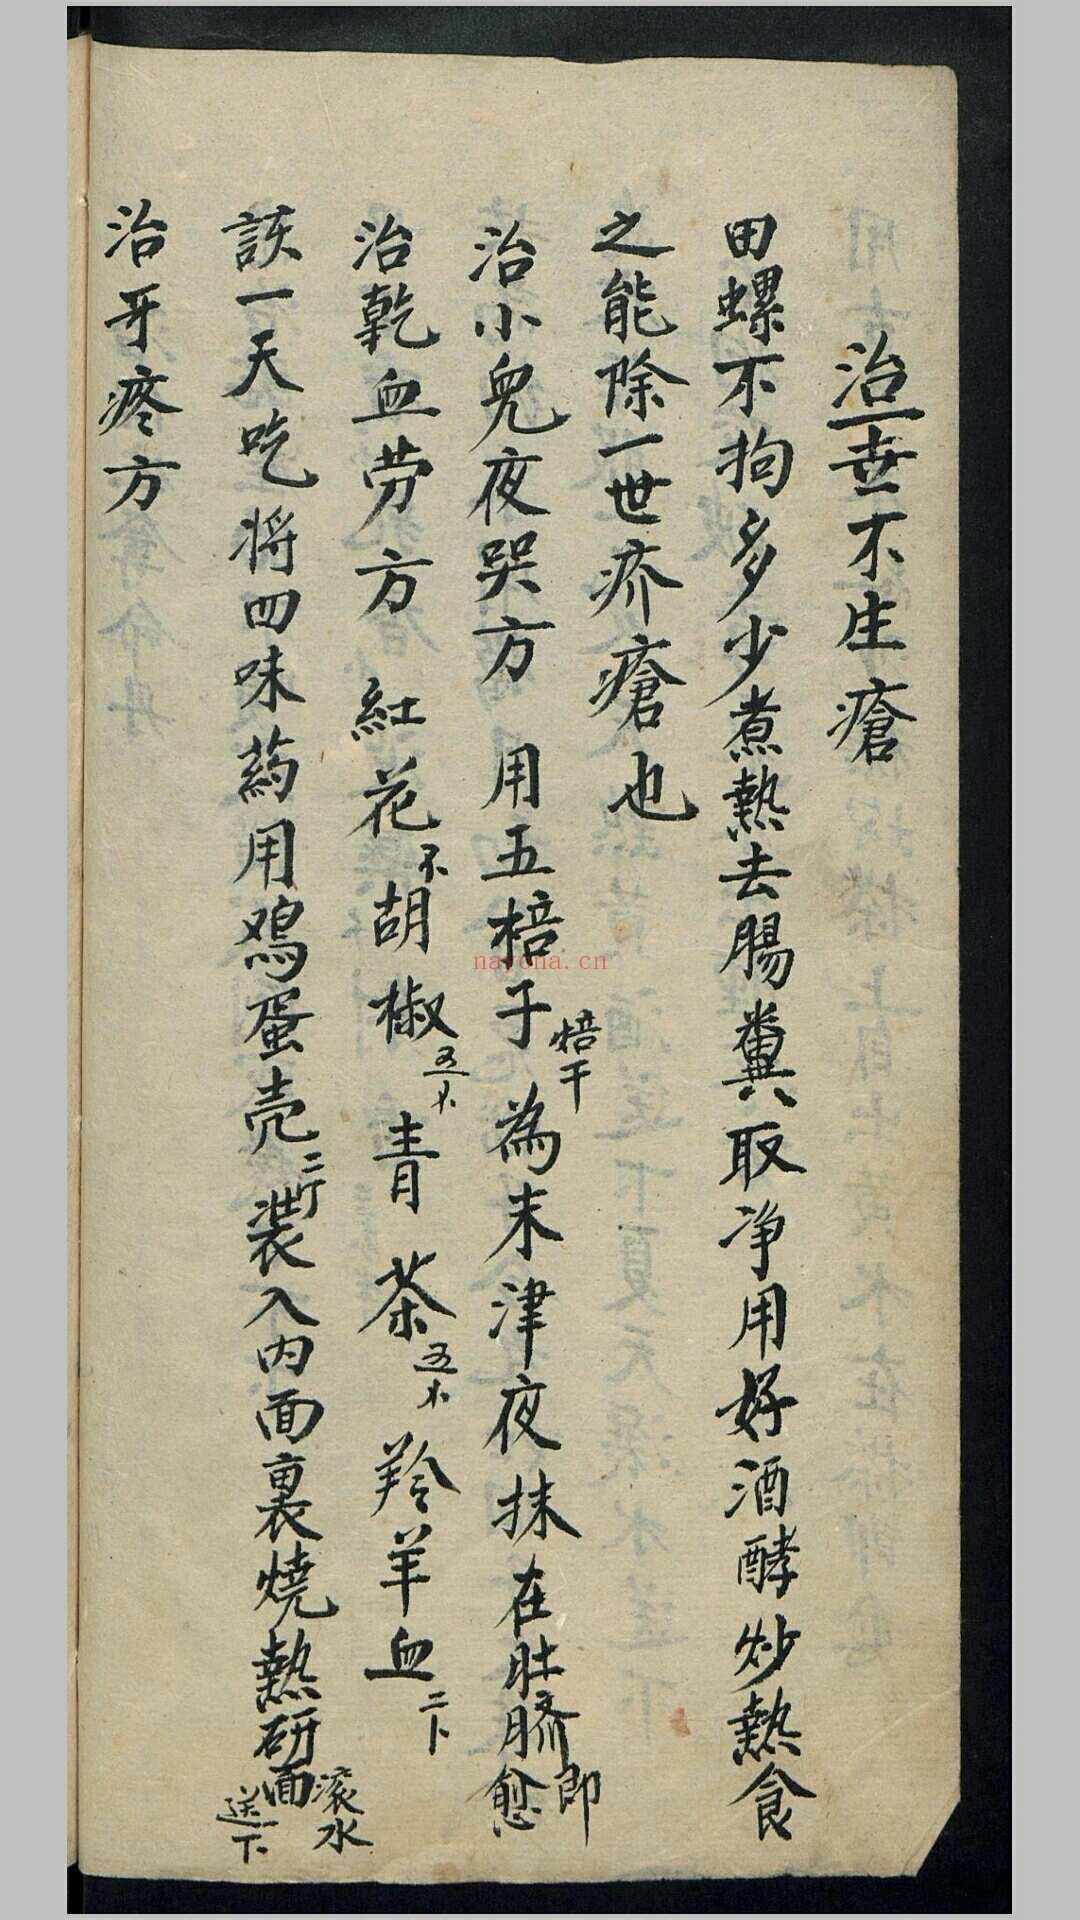 治一世不生瘡
田螺不拘多少煮熱去腸糞取净用好酒酵炒熱食
之能除一世疥瘡也
治小兒夜哭方 用五棓子焙干為末津夜抹在肚臍即愈
治乾血劳方 紅花 胡椒 青茶 羚羊血
一天吃将四味药用鸡蛋壳装入内面裹燒熱研面滚水送下
治牙疼方
nayona.cn